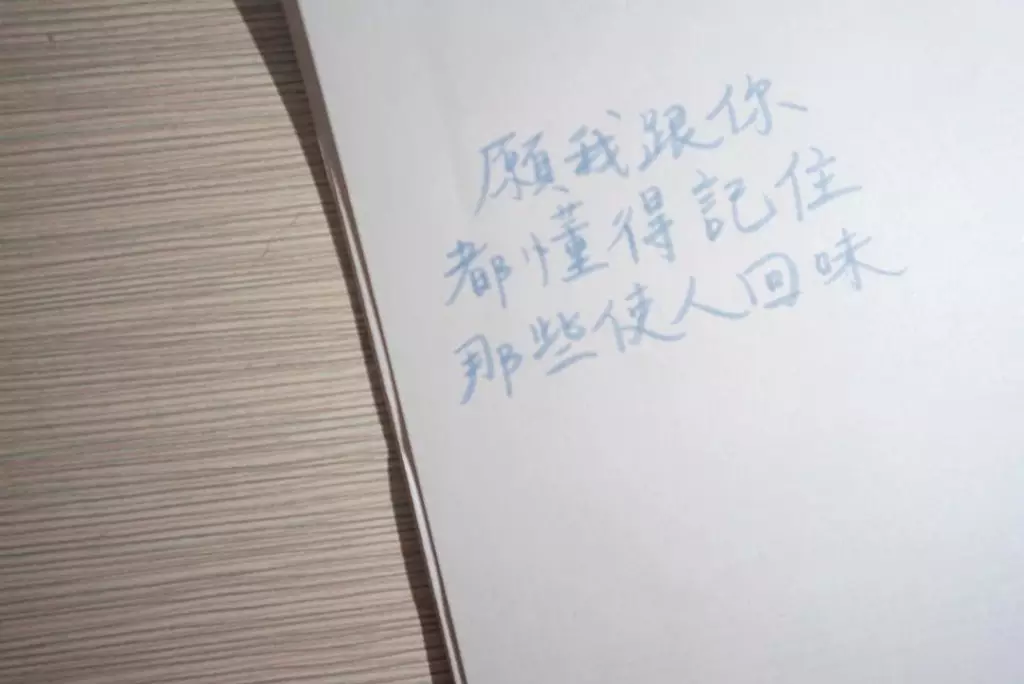 願我跟你
都懂得記住
那些使人回味